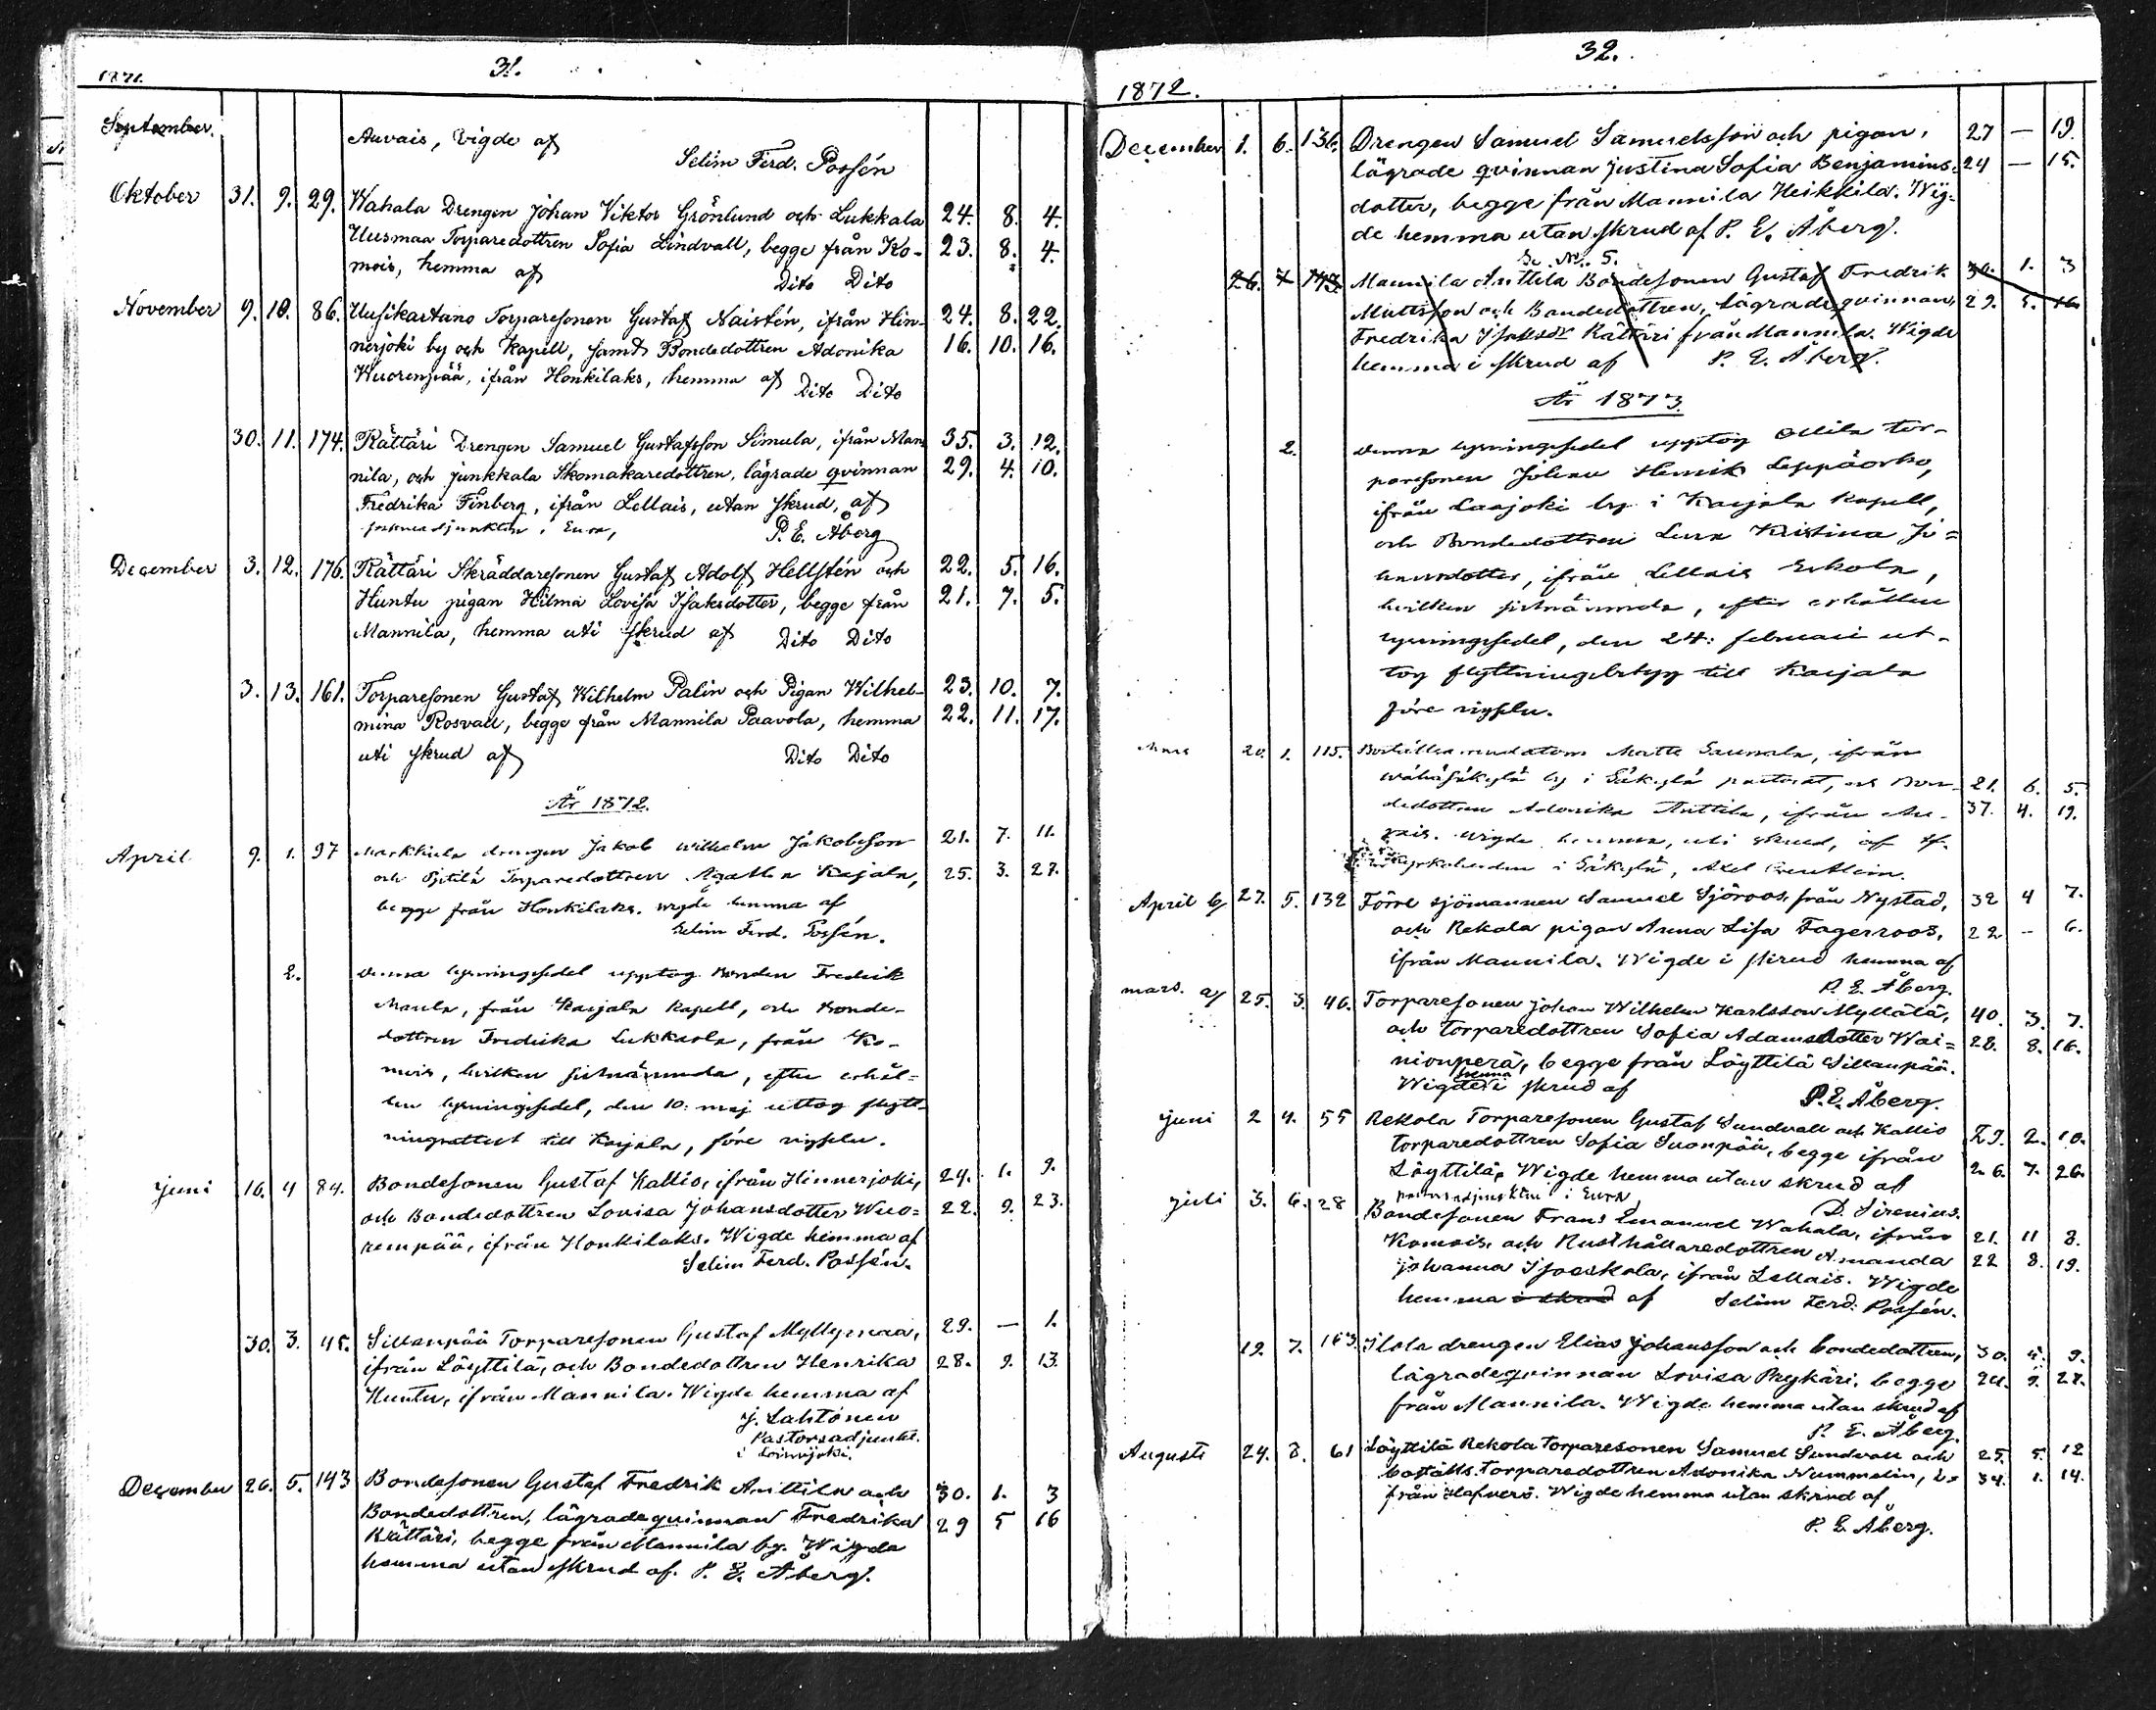 31.
1871.
September.
Auvais, Vigde af
Selim Ferd. Possén
Oktober 31. 9. 29. Wahala Drengen Johan Viktor Grönlund och Lukkala 24. 8. 4.
Uusmaa Torparedottren Sofia Lindvall, begge från Ko- 23. 8. 4.
mois, hemma af Dito Dito
November 9. 10. 86. Uusikartano Torparesonen Gustaf Naistén, ifrån Hin- 24. 8. 22.
nerjoki by och Kapell, samt Bondedottren Adonika 16. 10. 16.
Wuorenpää, ifrån Honkilaks, hemma af Dito Dito
30. 11. 174. Rättäri Drengen Samuel Gustafsson Simula, ifrån Man- 35. 3. 12.
nila, och Junkkala Skomakaredottren, lägrade qvinnan 29. 4. 10.
Fredrika Finberg, ifrån Lellais, utan skrud, af
i Eura, P. E. Åberg
December 3. 12. 176. Rättäri Skräddaresonen Gustaf Adolf Hellstén och 22. 5. 16.
Huntu pigan Hilma Lovisa Isaksdotter, begge från 21. 7. 5.
Mannila, hemma uti skrud af Dito Dito
3. 13. 161. Torparesonen Gustaf Wilhelm Palin och Pigan Wilhel- 23. 10. 7.
mina Rosvall, begge från Mannila Paavola, hemma 22. 11. 17.
uti skrud af Dito Dito
År 1872.
April 9. 1. 97 Markkula drengen Jakob Wilhelm Jakobsson 21. 7. 11.
och Torparedottren Agatha Kajala, 25. 3. 27.
begge från Honkilaks. wigde hemma af
Selim Ferd. Possén.
2. Denna lysningssedel upptog Bonden Fredrik
Maula, från Karjala Kapell, och Bonde-
dottren Fredrika Lukkarla, från Ko-
mois, hvilken sistnämnda, efter erhål-
len lysningssedel, den 10: maj uttog flytt-
ningsattest till Karjala, före vigseln.
Juni 16. 4 84. Bondesonen Gustaf Kallio, ifrån Hinnerjoki, 24. 1. 9.
och Bondedottren Lovisa Johansdotter Wuo= 22. 9. 23.
renpää, ifrån Honkilaks. Wigde hemma af
Selim Ferd. Possén.
30. 3. 45. Sillanpää Torparesonen Gustaf Myllymaa, 29. — 1.
ifrån Löyttilä, och Bondedottren Henrika 28. 9. 13
Huntu, ifrån Mannila. Wigde hemma af
J. Lahtonen
Pastorsadjunkt.
i Loimijoki.
December 26. 5. 143 Bondesonen Gustaf Fredrik Anttila och 30. 1. 3
Bondedottren, lägrade qvinnan Fredrika 29 5 16
Rättäri, begge från Mannila by. Wigde
hemma utan skrud af. P. E. Åberg.
32.
1872.
December 1. 6. 136. Drengen Samuel Samuelsson och pigan, 27 — 19.
lägrade qvinnan Justina Sofia Benjamins= 24 — 15.
dotter, begge från Mannila Heikkilä. Wig=
de hemma utan skrud af P. E. Åberg.
Se No. 5.
26. 7 143. Mannila Anttila Bondesonen Gustaf Fredrik 30. 1. 3
Mattsson och Bondedottren, lägrade qvinnan, 29. 5. 16
Fredrika Isaksdr Rättäri från Mannila. Wigde
hemma i skrud af P. E. Åberg.
År 1873.
2. Denna lysningssedel upptog tor-
paresonen Johan Henrik Leppäorko,
ifrån Laajoki by i Karjala Kapell,
och Bondedottren Lena Kristina Jo=
hansdotter, ifrån Lellais Eskola,
hvilken sistnämnda, efter erhållen
lysningssedel, den 24: februari ut-
tog flyttningsbetyg till Karjala
före vigseln.
Mars 20. 1. 115. Matts ifrån
by i Säkylä pastorat, och Bon- 21. 6. 5.
dedottren Adonika Anttila, ifrån Au- 37. 4. 19.
vais. Wigde hemma, uti skrud, af
i Säkylä, Axel
April 6/ 27. 5. 132 Förre sjömannen Samuel Sjöroos, från Nystad, 32 4 7.
och Rekola pigan Anna Lisa Fagerroos, 22 - 6.
ifrån Mannila. Wigde i skrud hemma af
P. E. Åberg.
mars. a/ 25. 3. 46. Torparesonen Johan Wilhelm Karlsson Myllälä, 40. 3. 7.
och torparedottren Sofia Adamsdotter Wai= 28. 8. 16.
nionperä, begge från Löyttilä Sillanpää.
Wigde hemma i skrud af P. E. Åberg.
Juni 2 4. 55 Rekola Torparesonen Gustaf Sundvall och Kallio 29. 2. 10.
torparedottren Sofia Suonpää, begge ifrån
Löyttilä, Wigde hemma utan skrud af 26. 7. 26.
pastorsadjunkten i Eura D. Sirenius.
Juli 3. 6. 28 Bondesonen Frans Emanuel Wahala, ifrån 21. 11 8.
Komois, och Rusthållaredottren Amanda 22 8. 19.
Johanna Isoeskola, ifrån Lellais. Wigde
hemma i skrud af Selim Ferd. Possén.
19. 7. 163 Ilola drengen Elias Johansson och bondedottren, 30. 4. 9.
lägrade qvinnan Lovisa Prykäri, begge 24. 9. 27.
från Mannila. Wigde hemma utan skrud af
P. E. Åberg.
Augusti 24. 8. 61 Löyttilä Rekola torparesonen Samuel Sundvall och 25. 5. 12
boställs. torparedottren Adonika Nummelin, 34. 1. 14.
från Wigde hemma utan skrud af
P. E. Åberg.